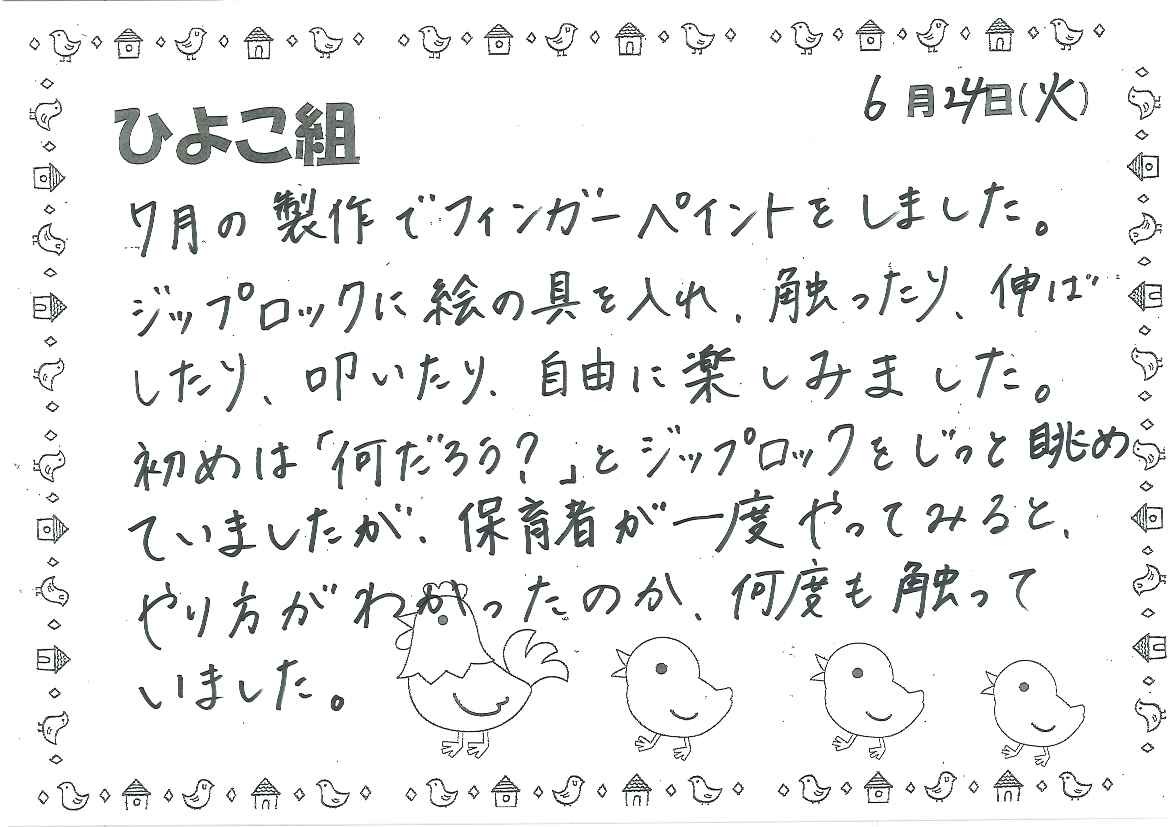 6月24日(火)
ひよこ組
7月の製作でフィンガーペイントをしました。
ジップロックに絵の具を入れ、触ったり、伸ば
したり、叩いたり、自由に楽しみました。
初めは「何だろう?」とジップロックをじっと眺め
ていましたが、保育者が一度やってみると、
やり方がわかったのか、何度も触って
いました。